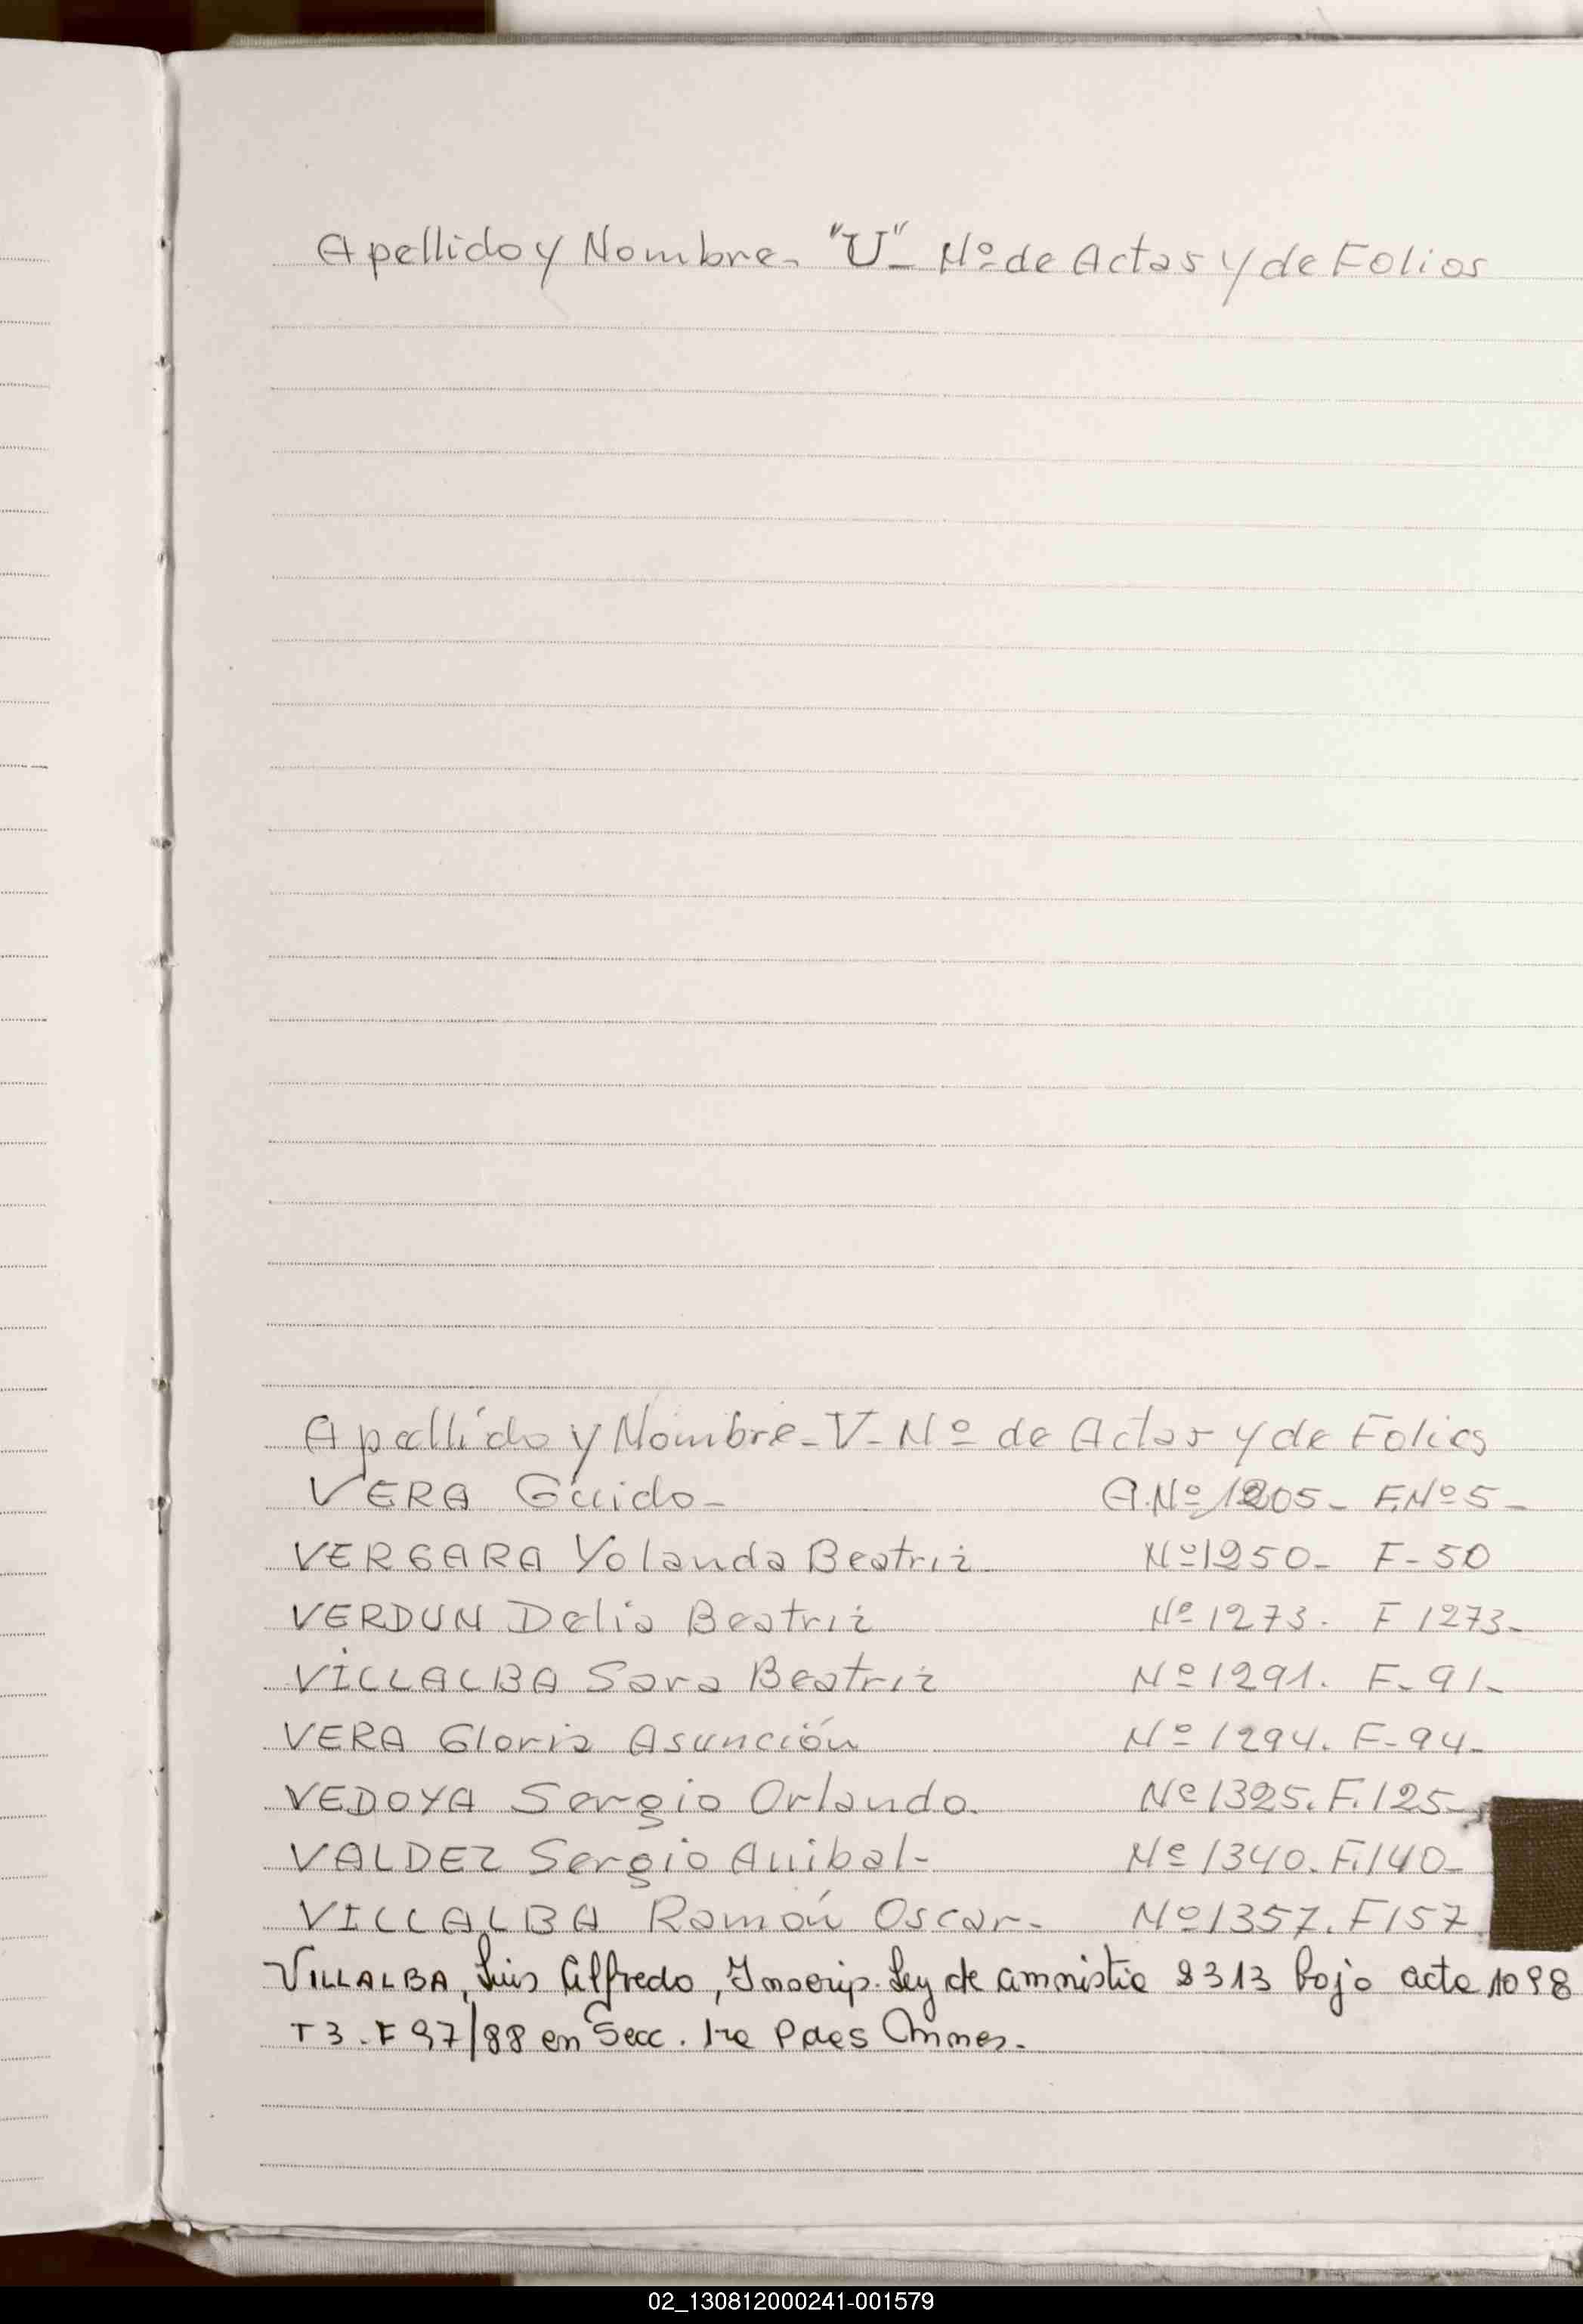 Apellido y Nombre- "U"- Nº de Actas y de Folios
Apellido y Nombre- V- Nº de Actas y de Folios
VERA Guido- A.Nº 1205- F.Nº 5-
VERGARA Yolanda Beatriz Nº 1250- F-50
VERDUN Delia Beatriz Nº 1273. F 1273-
VILLALBA Sara Beatriz Nº 1291. F-91-
VERA Gloria Asunción Nº 1294. F-94-
VEDOYA Sergio Orlando. Nº 1325. F.125-
VALDEZ Sergio Anibal- Nº 1340. F.140-
VILLALBA Ramón Oscar- Nº 1357. F157
VILLALBA, Luis Alfredo, Inscrip. Ley de amnistia 8313 bajo acta 1098
T3-F 97/88 en Secc. 1ra
02_130812000241-001579